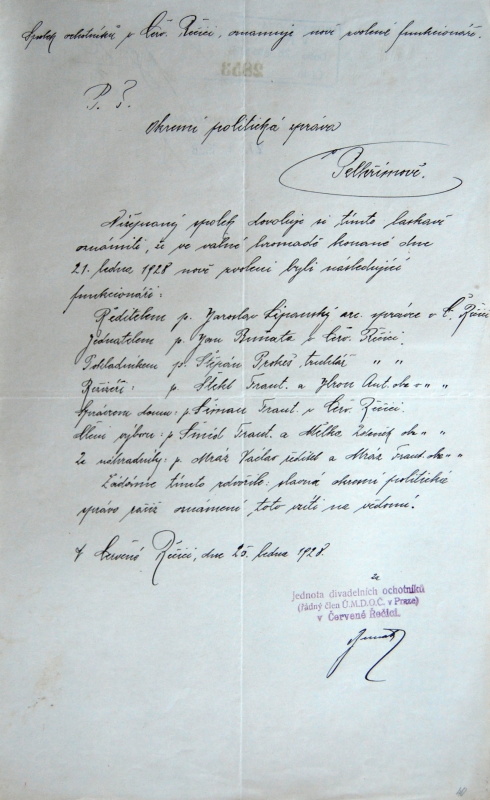 Spolek ochotníků v Červ. Řečici, oznamuje nově zvolené funkcionáře.
2853
P. T.
Okresní politická správa
v Pelhřimově.
Níže psaný spolek dovoluje si tímto laskavě
oznámiti, že ve valné hromadě konané dne
21. ledna 1928 nově zvoleni byli následující
funkcionáři:
Ředitelem p. Jaroslav arc. správce v Č. Řečici
Jednatelem p. Jan Bunata v Červ. Řečici,
Pokladníkem p. Štěpán Prokeš, truhlář " "
Revisoři: p. Štekl Frant. a Hron Ant. oba v " "
Správcem domu: p. Šiman Frant. v Červ. Řečici.
Členi výboru: p. Šmíd Frant. a Milka Zdeněk oba " "
Za náhradníky: p. Mráz Václav ředitel a Mráz Frant. oba " "
Žádáme tímto zdvořile: slavná okresní politická
správo račiž oznámení toto vzíti na vědomí.
V Červené Řečici, dne 25. ledna 1928.
Za
Jednota divadelních ochotníků
(řádný člen Ú.M.D.O.Č. v Praze)
v Červené Řečici.